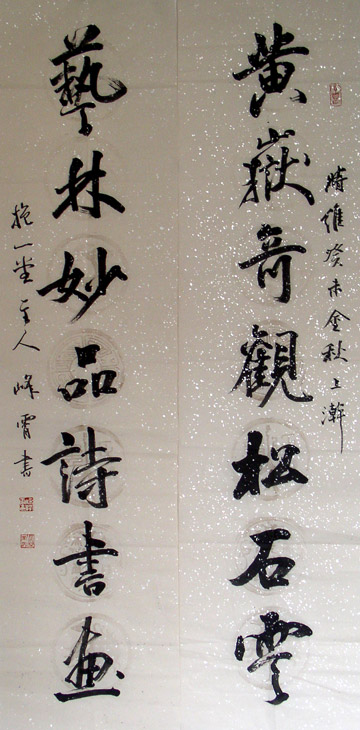 時維癸未金秋上澣
黄嶽奇觀松石雲
藝林妙品詩書画
抱一堂主人峰霄書